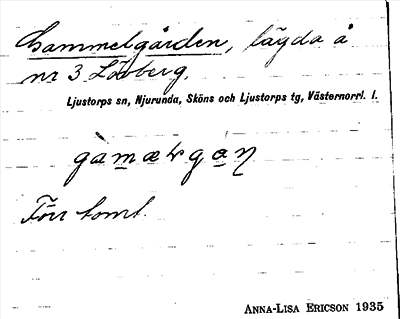 Gammelgården, lägda å
nr 3 Lövberg.
Ljustorps sn, Njurunda, Sköns och Ljustorps tg, Västernorrl. l.
Förr tomt.
ANNA-LISA ERICSON 1935